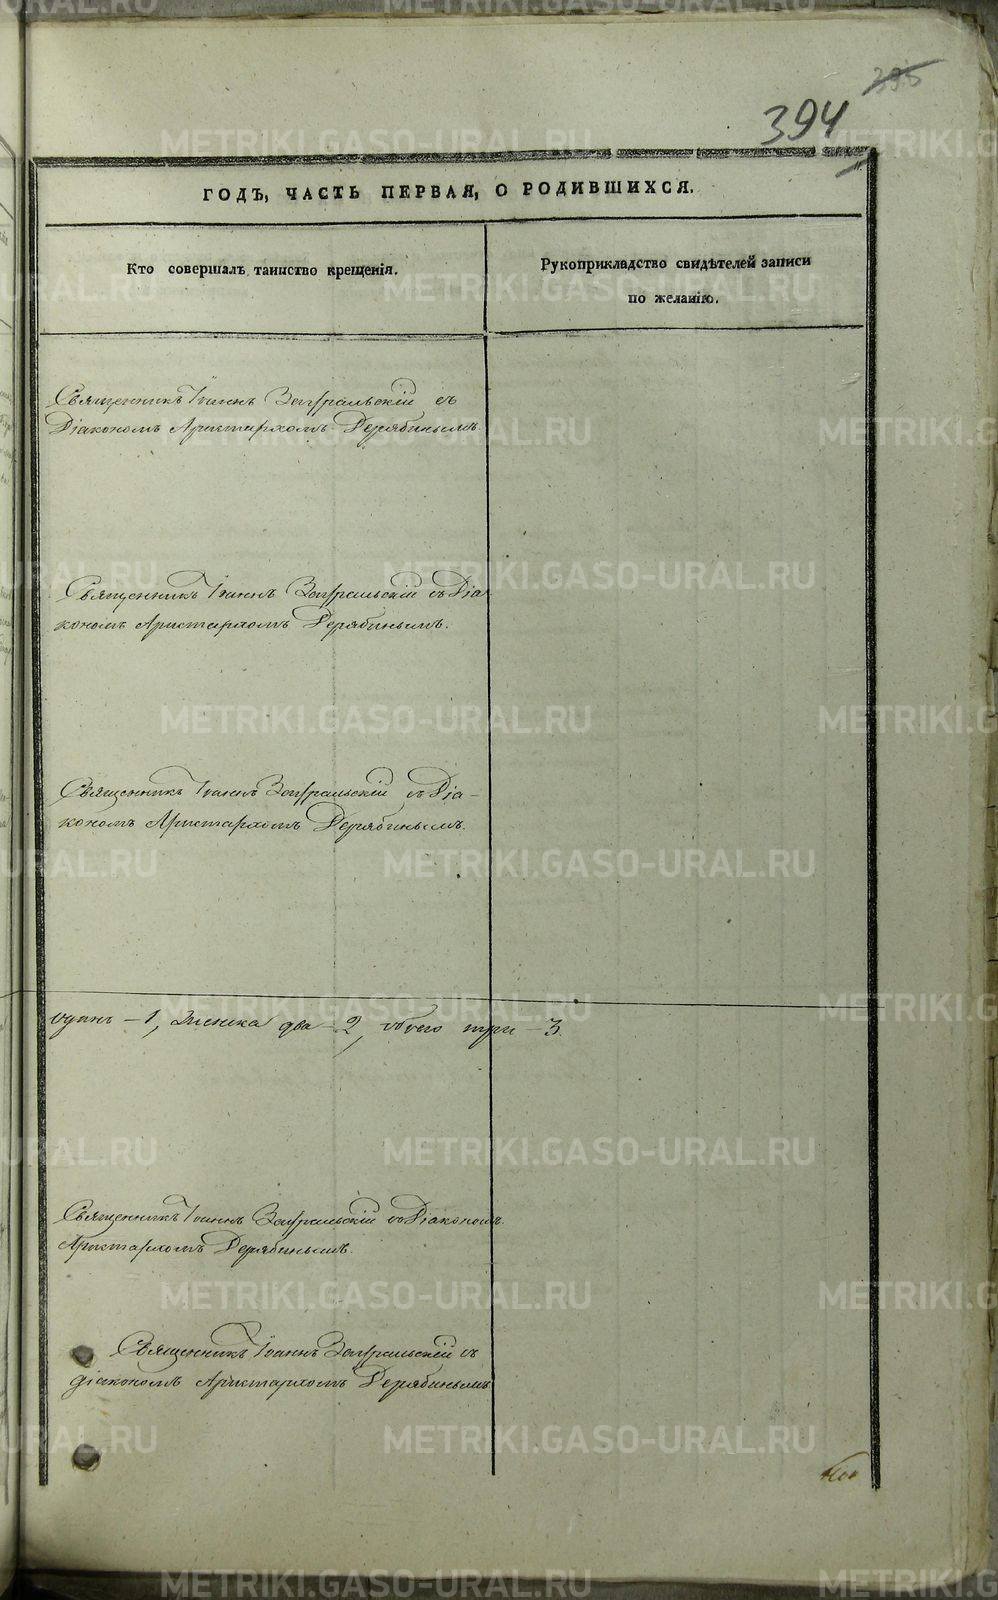 395
394
ГОДЪ, ЧАСТЬ ПЕРВАЯ, О РОДИВШИХСЯ.
Кто совершалъ таинство крещенія.
Рукоприкладство свидѣтелей записи
по желанію.
Священникъ Іоаннъ Зауральскій съ
Діакономъ Аристархомъ Дерябинымъ.
Священникъ Іоаннъ Зауральскій съ Діа
кономъ Аристархомъ Дерябинымъ.
Священникъ Іоаннъ Зауральскій съ Діа-
кономъ Аристархомъ Дерябинымъ.
одинъ - 1, Женска два - 2, обоего три - 3.
Священникъ Іоаннъ Зауральскій съ Діакономъ
Аристархомъ Дерябинымъ.
Священникъ Іоаннъ Зауральскій съ
діакономъ Аристархомъ Дерябинымъ
METRIKI.GASO-URAL.RU